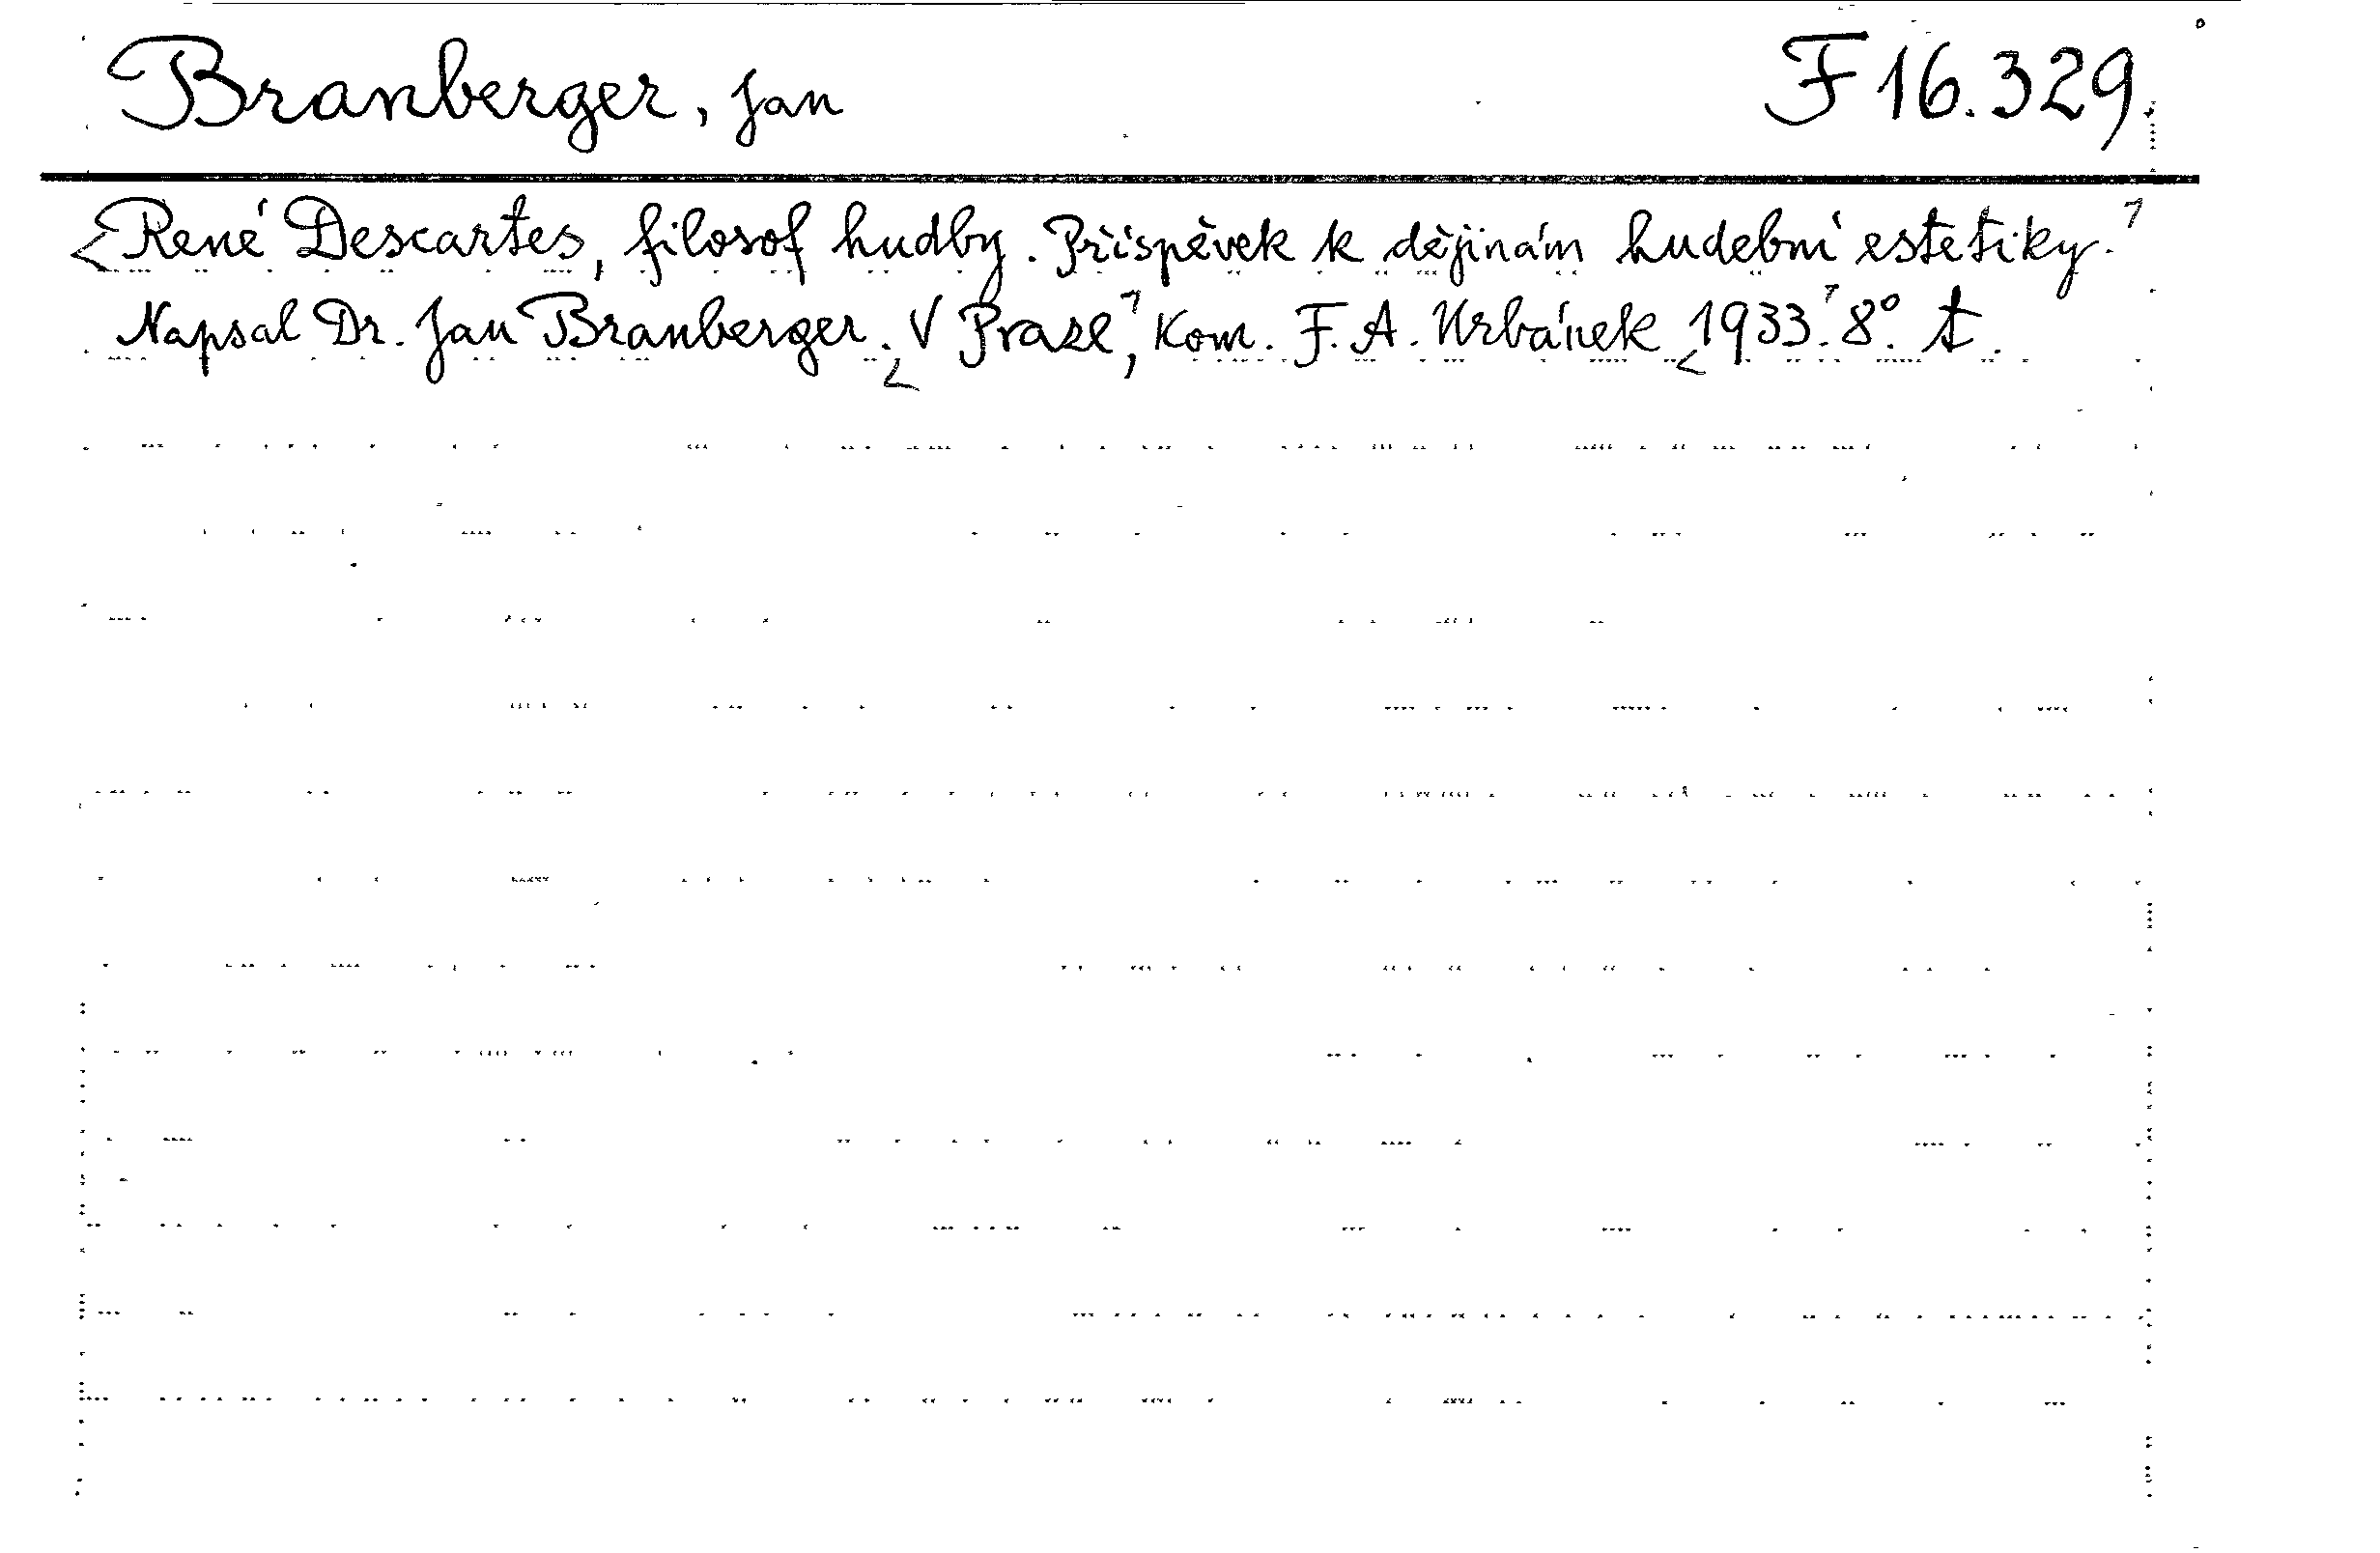 Branberger, Jan F 16.329.
René Descartes, filosof hudby. Příspěvek k dějinám hudební estetiky.
Napsal Dr. Jan Branberger. V Praze, Kom. F. A. Urbánek 1933. 8°. t.